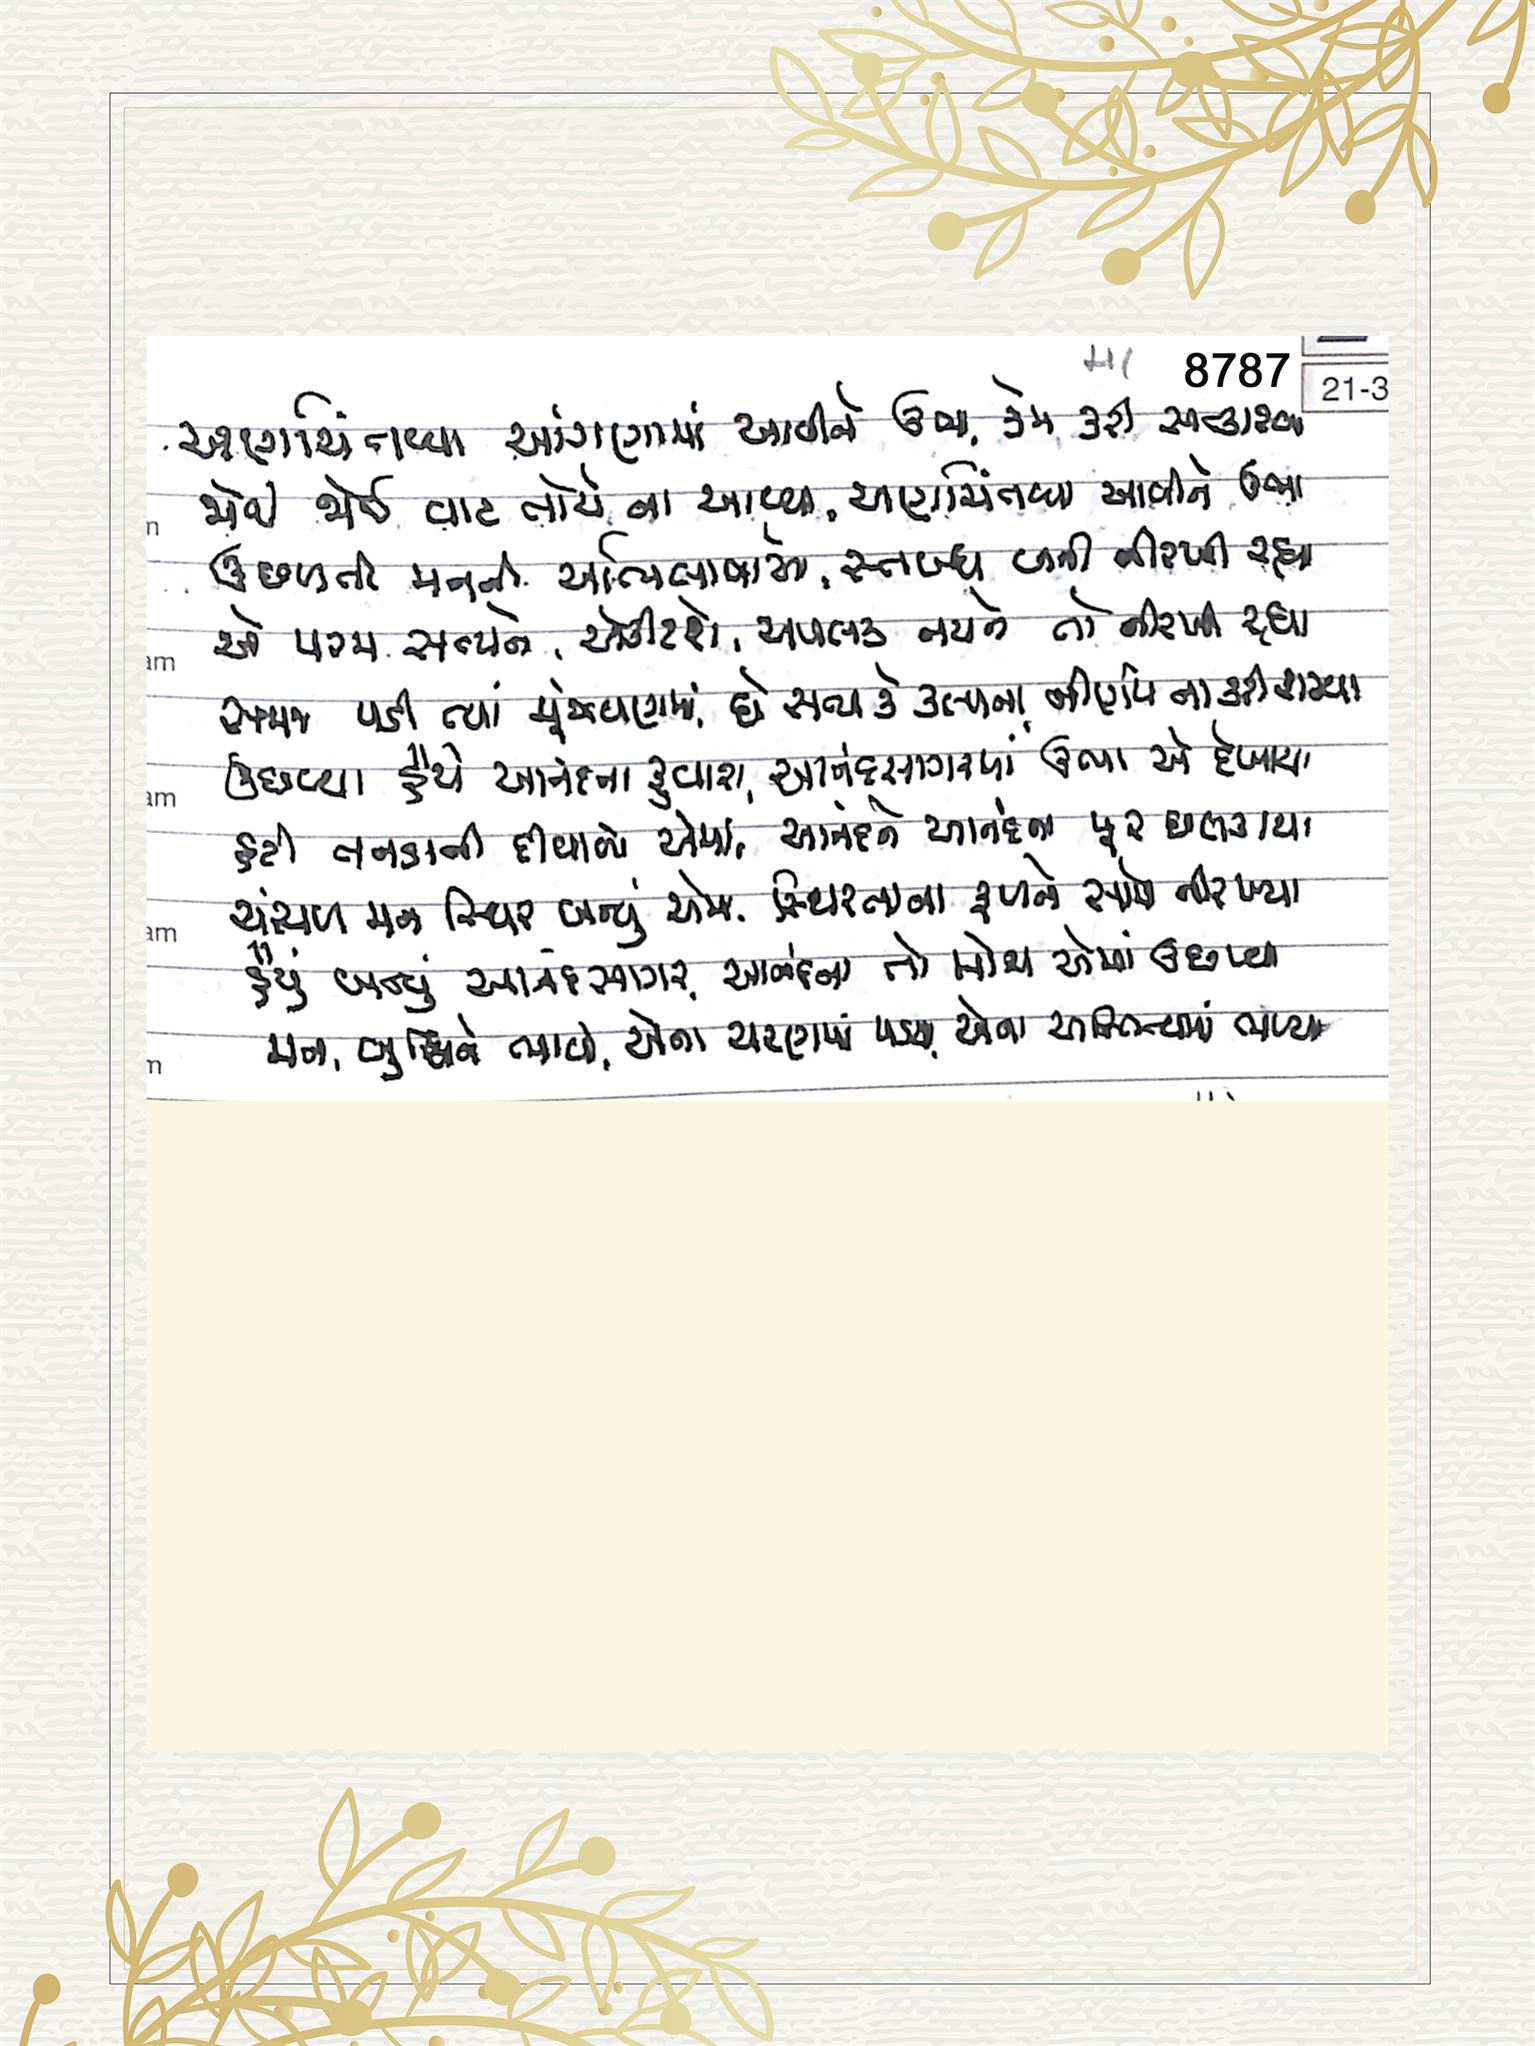 8787
21-3
અણચિંતવ્યા આંગણામાં આવીને ઉભા, કેમ કરી સત્કારવા
જોઈ જોઈ વાટ તોયે ના આવ્યા, અણચિંતવ્યા આવીને ઉભા
ઉછળતી મનની અભિલાષાઓ, સ્તબ્ધ બની નીરખી રહ્યા
એ પરમ સત્યને, એકીટશે, અપલક નયને તો નીરખી રહ્યા
સમજ પડી ત્યાં મૂંઝવણમાં, છે સત્ય કે કલ્પના, નીર્ણય ના કરી શક્યા
ઉછળ્યા હૈયે આનંદના ફુવારા, આનંદસાગરમાં ઉભા એ દેખાયા
ફટી તનડાની દીવાલો એમાં, આનંદને આનંદના પૂર છલકાયા
ચંચળ મન સ્થિર બન્યું એમાં, સ્થિરતાના ફળને સામે નીરખ્યા
હૈયું બન્યું આનંદસાગર, આનંદના તો મોજા એમાં ઉછળ્યા
મન, બુદ્ધિને ભાવો, એના ચરણમાં પડ્યા, એના અસ્તિત્વમાં ભળ્યા
am
am
am